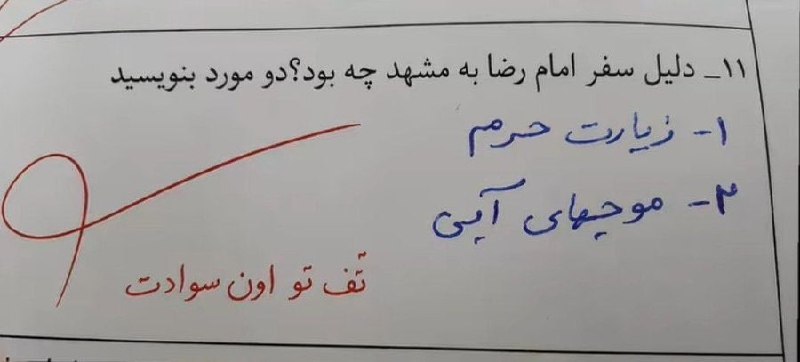 ۱۱_ دلیل سفر امام رضا به مشهد چه بود؟دو مورد بنویسید
۱- زیارت حرم
۲- موجهای آبی
تُف تو اون سوادت